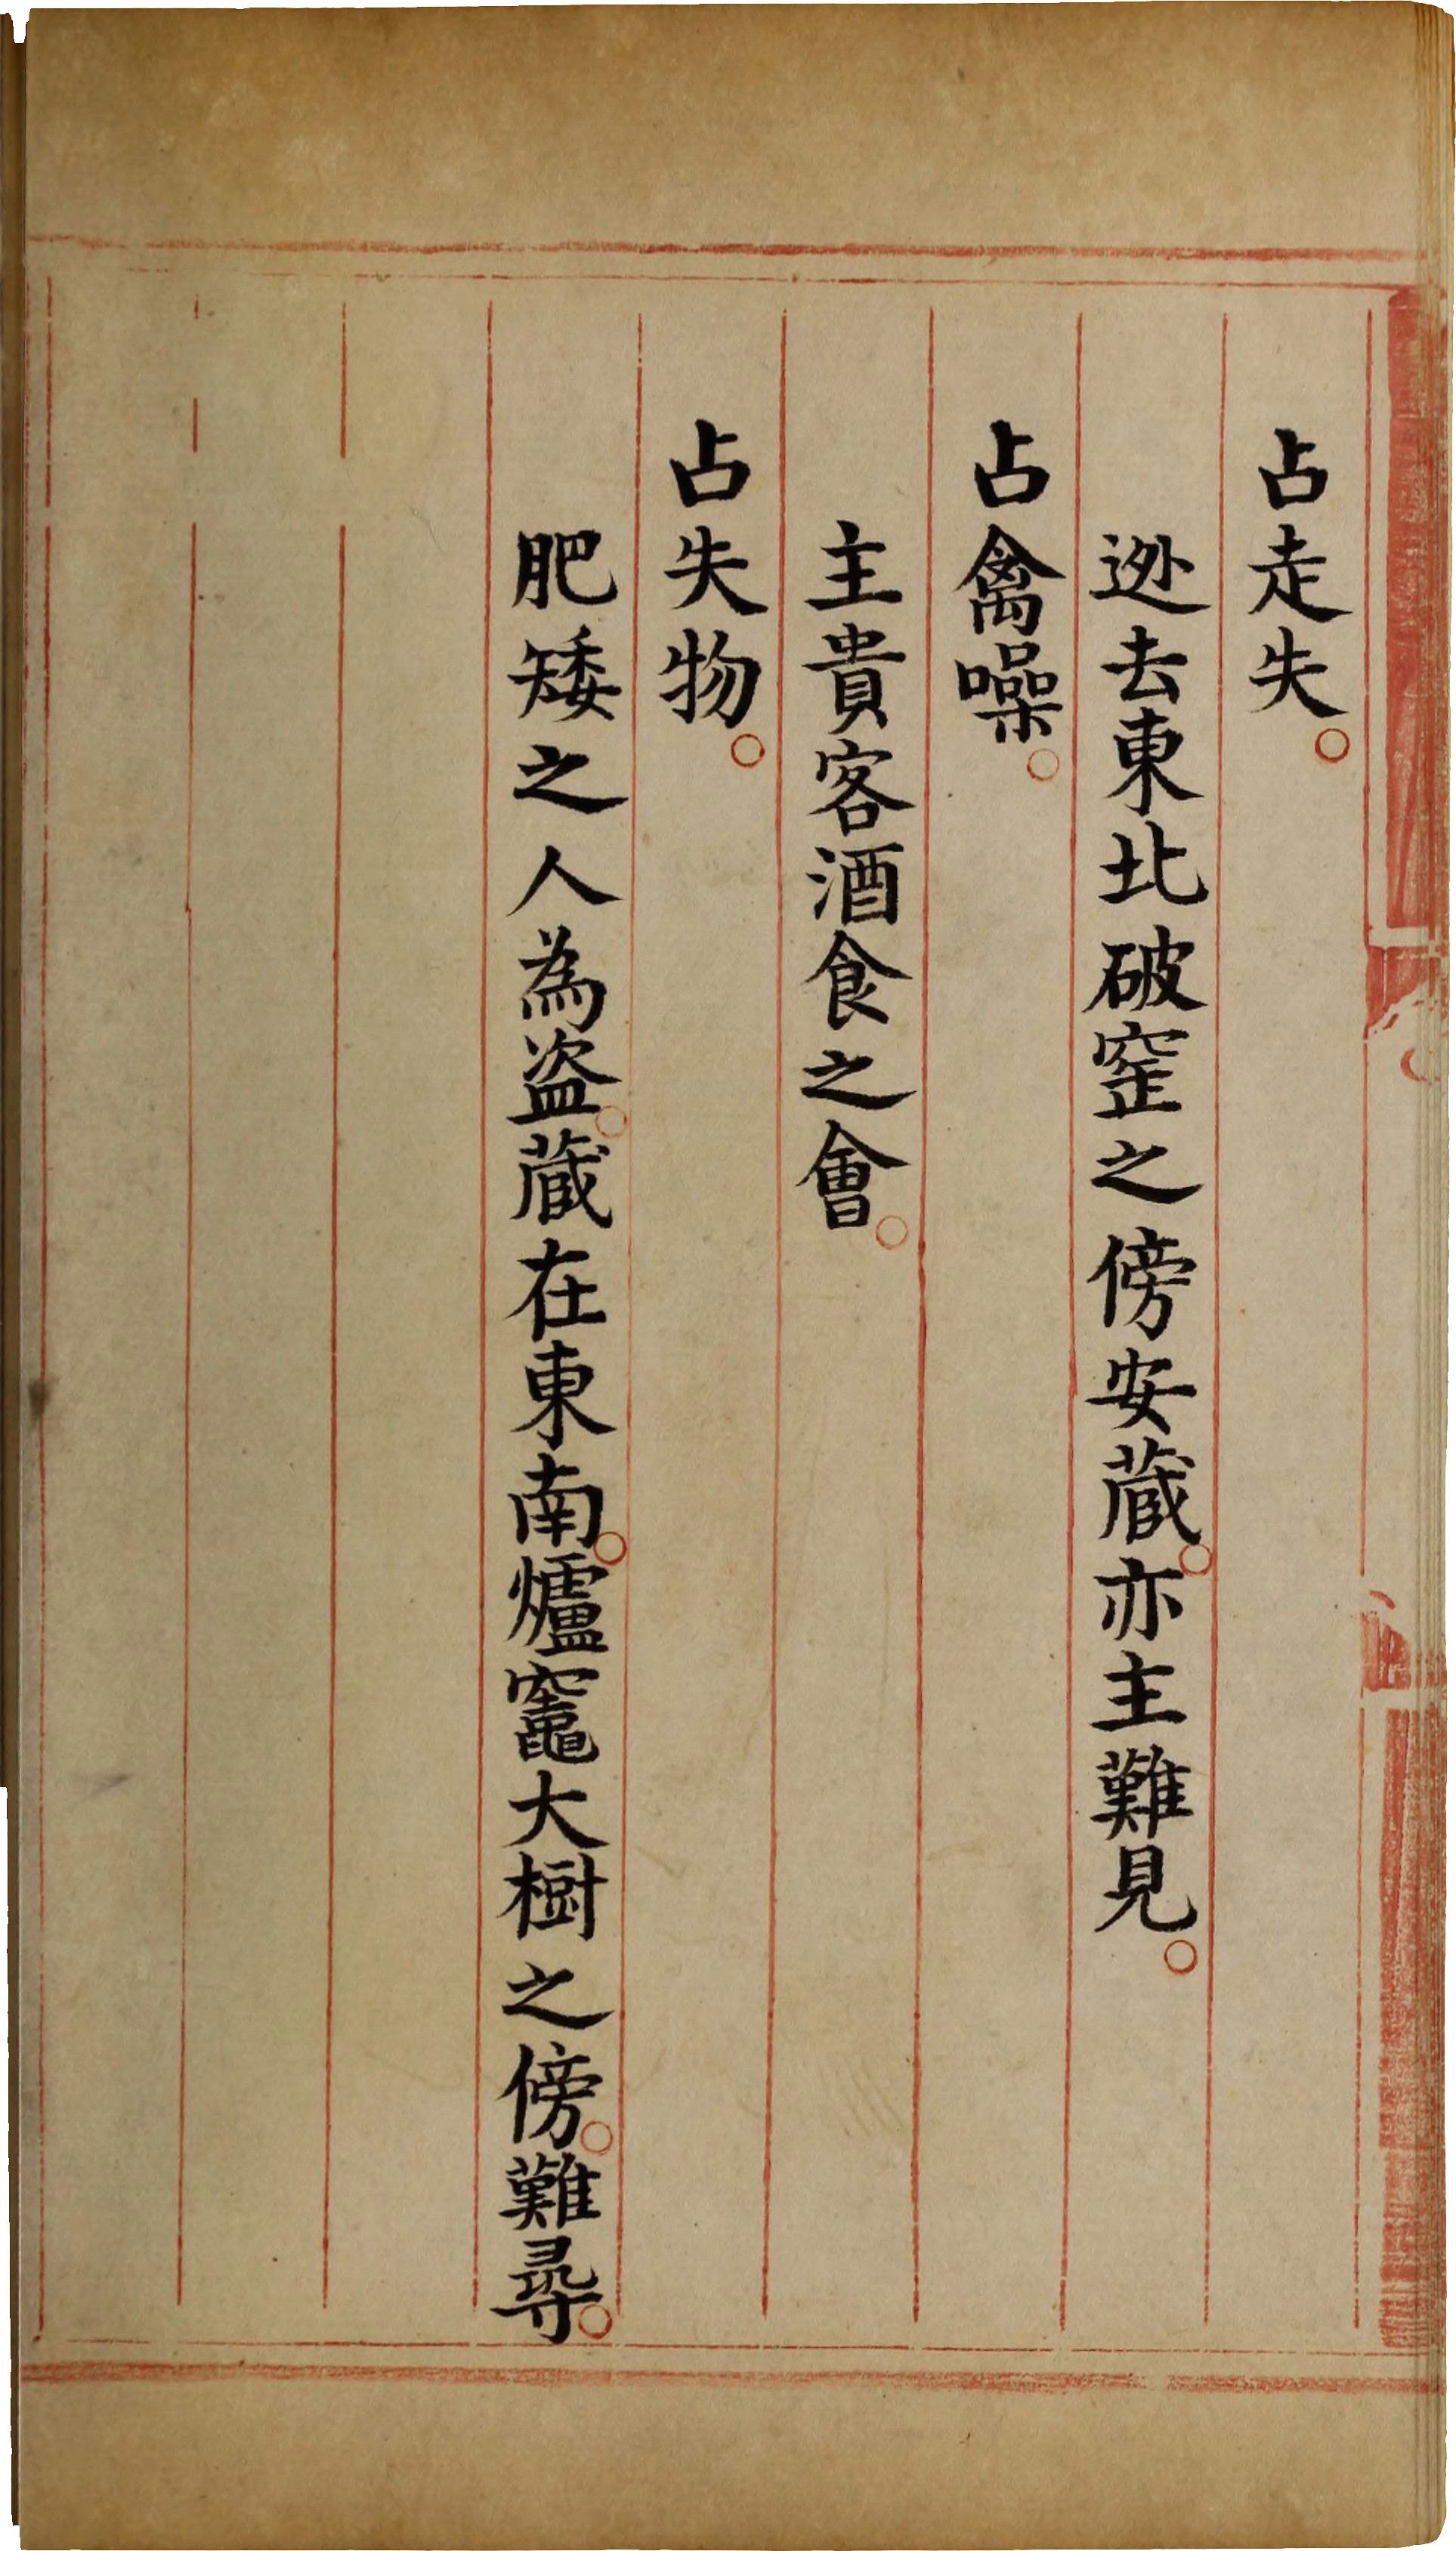 占走失。
逊去東北破窰之傍安蔵。亦主難見。
占禽噪。
主貴客酒食之會。
占失物。
肥矮之人為盗。蔵在東南。爐竈大樹之傍。難尋。